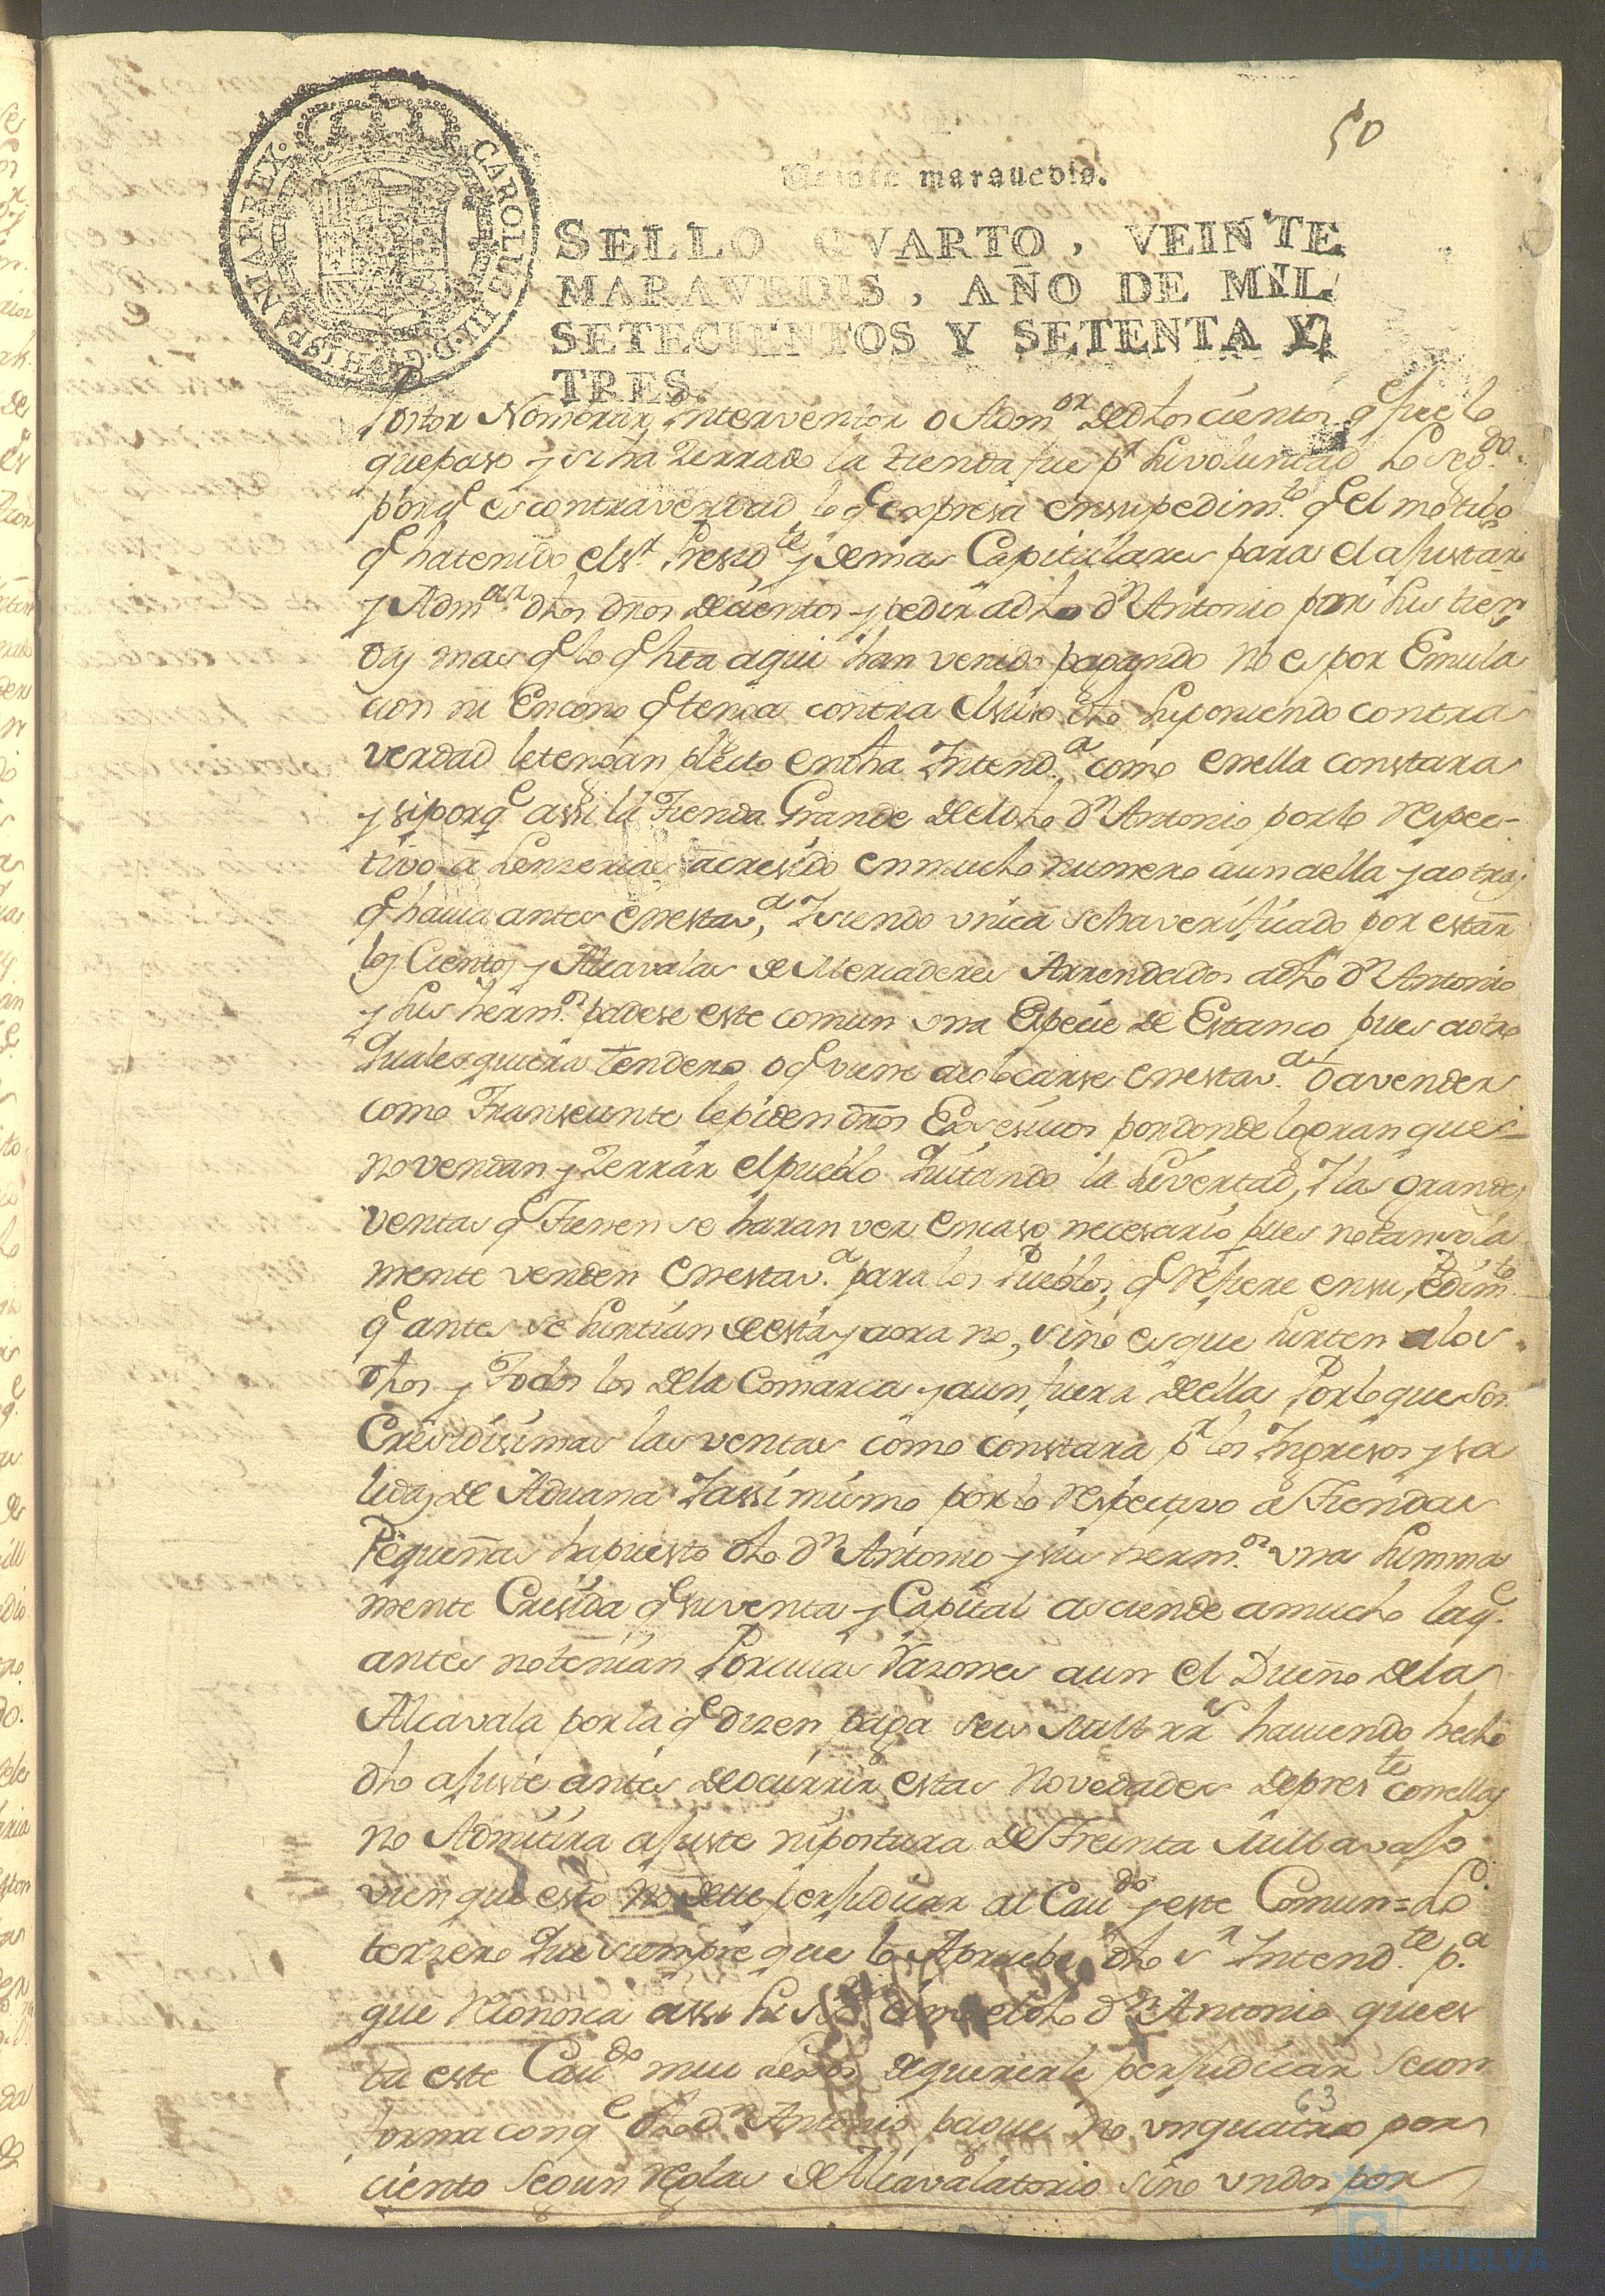 50
CAROLUS III D G HISPANIAR REX
Veinte marauedis.
SELLO QVARTO, VEINTE
MARAVEDIS, AÑO DE MIL
SETECIENTOS Y SETENTA Y
TRES.
Postor Nombrar Interventor o Adm.or de dhos cientos q.e fue lo
que paso y si ha zerrado la tienda fue p.r su voluntad Lo seg.do
porq.e es contra verdad lo q.e expresa en su pedim.to q.e el motibo
q.e ha tenido el s.r Presid.te y demas Capitulares para el ajustar
y Adm.rar dhos dros de cientos y pedir a dho d.n Antonio por sus tien
das mas q.e lo q.e hta aqui han venido pagando no es por Emula
cion ni Encono q.e tenia contra el suso dho suponiendo contra
verdad le tenian pleito en dha Intend.a como en ella constara
y si porq.e assi la Tienda Grande de el dho d.n Antonio por lo respec-
tivo a Lenzerias a cresido en mucho numero aun a ella y a otras
q.e havia antes en esta v.a Y siendo vnica se ha verificado por estar
los Cientos y Alcavalas de Mercaderes Arrendados a dho d.n Antonio
y sus herm.os padese este comun vna Espesie de Estanco pues a otro
qualesquiera tendero o q.e viene a colocarse en esta v.a o a vender
como Transeunte le piden dros Exsesivos por donde logran que
no vendan y zerrar el pueblo quitando la livertad, Y las grandes
ventas q.e tienen se haran ver en caso necesario pues no tan sola
mente venden en esta v.a para los Pueblos, q.e refiere en su Pedim.to
q.e antes se surtian de esta y aora no, sino es que surten a los
dhos y Todos los de la Comarca y aun fuera de ella Por lo que son
Cresidisimas las ventas como constara p.r los Ingresos y sa
lidas de Aduana Y assimismo por lo respectivo a Tiendas
Pequeñas ha puesto dho d.n Antonio y sus herm.os vna summa
mente Cresida q.e su venta y Capital asciende a mucho la q.e
antes no tenian Por cuias razones aun el Dueño de la
Alcavala por la q.e dizen paga seis mill rr.s haviendo hecho
dho ajuste antes de ocurrir estas novedades de pres.te con ellas
no Admitira ajuste ni postura de Treinta mill avajo
vien que esto no deve perjudicar al Cav.do y este Comun = Lo
terzero que siempre que lo Apruebe dho s.r Intend.te p.a
que reconosca assi su s.a como el dho d.n Antonio que es
ta este Cav.do mui Lexos de quererle perjudicar se con
forma con q.e dho d.n Antonio pague no vn quatro por
63
ciento segun reglas de Alcavalatorio sino vn dos por
Ayuntamiento
HUELVA